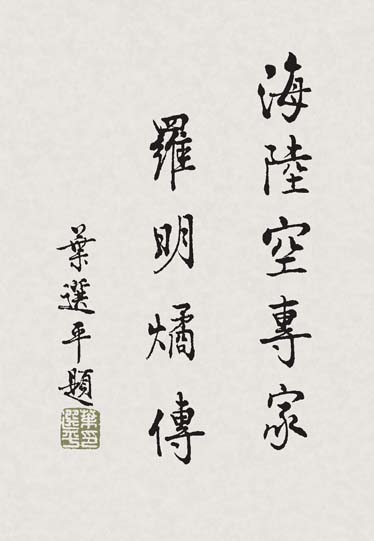 海陸空專家
羅明燏傳
葉選平題